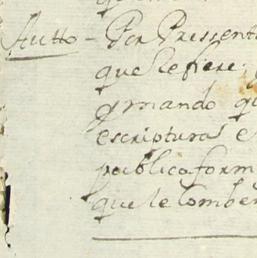 Autto - Por Pressent
que se fiere
gmando qu
escripturas e
publica form
que le Comben